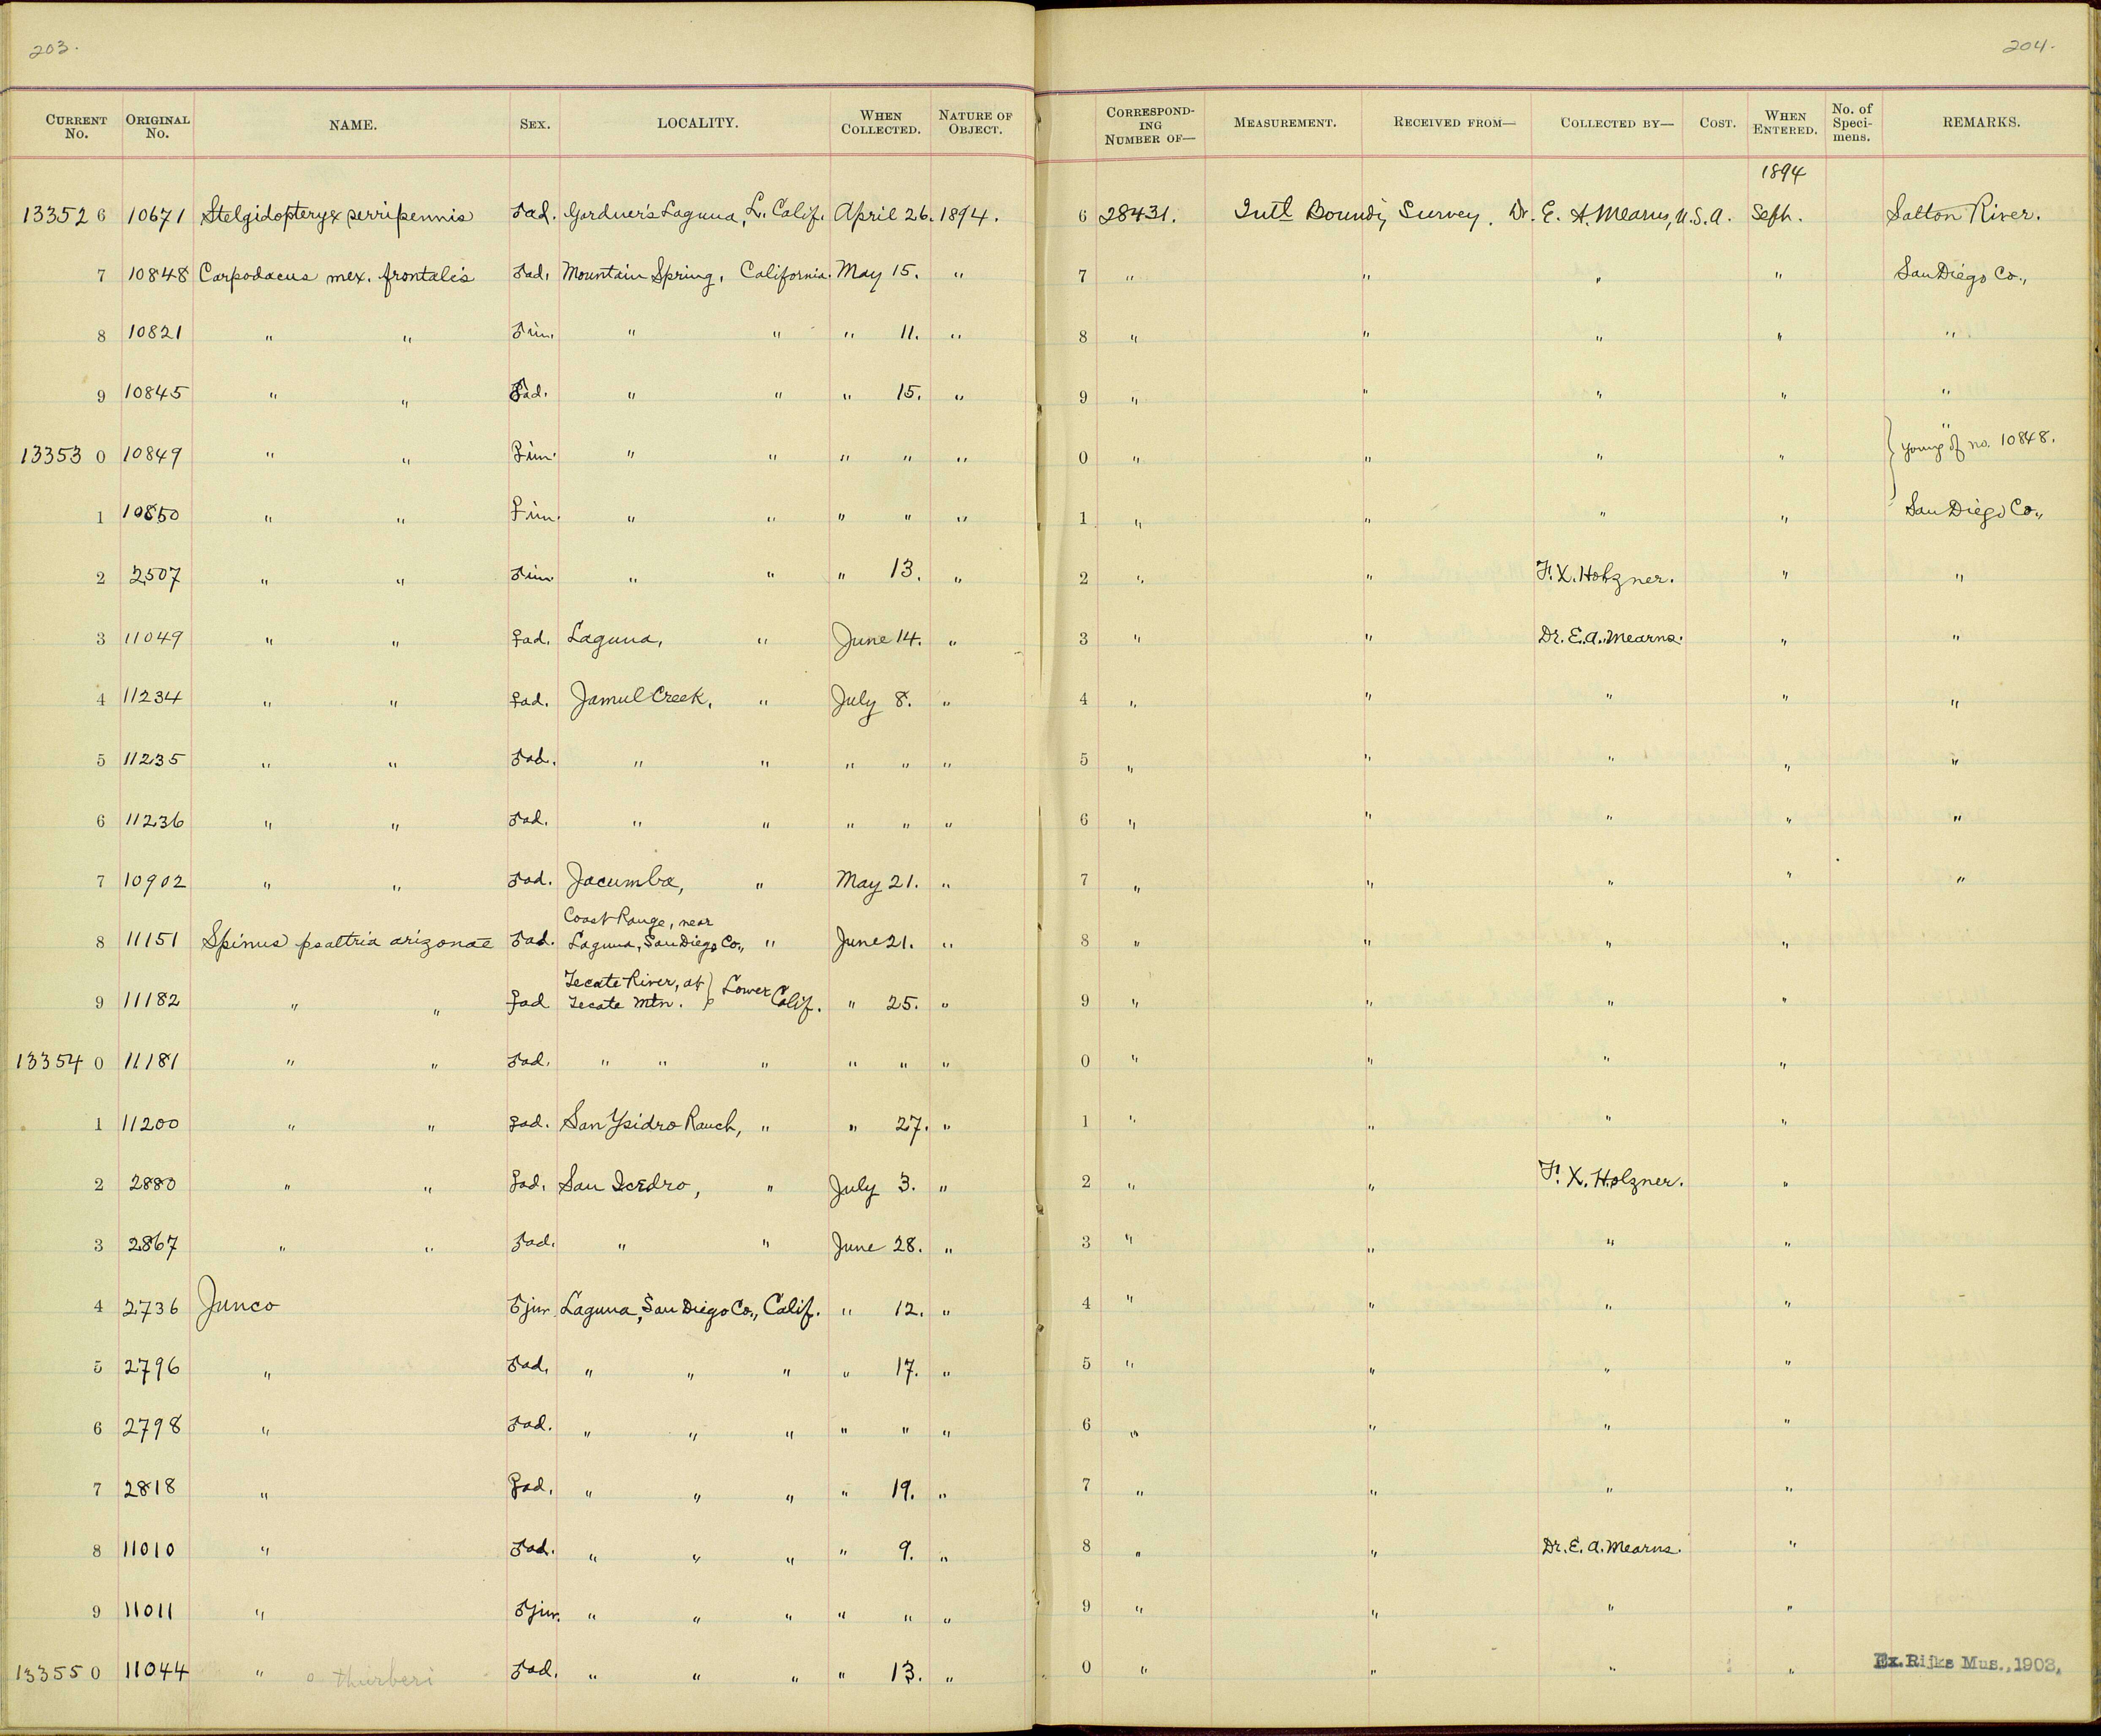 203.
204.
CURRENT No. ORIGINAL No. NAME. SEX. LOCALITY. WHEN COLLECTED. NATURE OF OBJECT. CORRESPONDING NUMBER OF— MEASUREMENT. RECEIVED FROM— COLLECTED BY— COST. WHEN ENTERED. No. of Specimens. REMARKS.
1894
13352 6 10671 Stelgidopteryx serripennis ♂ad. Gardner's Laguna, L. Calif. April 26. 1894. 6 28431. Intl Bound'y Survey. Dr. E. A. Mearns, U.S.A. Sept. Salton River.
7 10848 Carpodacus mex. frontalis ♂ad. Mountain Spring, California. May 15. " 7 " " " " San Diego Co.,
8 10821 " " ♂im. " " " 11. " 8 " " " " "
9 10845 " " ad. " " " 15. " 9 " " " " "
13353 0 10849 " " ♀im. " " " " " 0 " " " " " } young of no. 10848.
1 10850 " " ♀im. " " " " " 1 " " " " San Diego Co.,
2 2507 " " ♂im. " " " 13. " 2 " " F. X. Holzner. " "
3 11049 " " ♀ad. Laguna, " June 14. " 3 " " Dr. E. A. Mearns. " "
4 11234 " " ♀ad. Jamul Creek, " July 8. " 4 " " " " "
5 11235 " " ♂ad. " " " " " 5 " " " " "
6 11236 " " ♂ad. " " " " " 6 " " " " "
7 10902 " " ♂ad. Jacumba, " May 21. " 7 " " " " "
Coast Range, near
8 11151 Spinus psaltria arizonae ♂ad. Laguna, San Diego Co., " June 21. " 8 " " " "
Tecate River, at } Lower
9 11182 " " ♀ad Tecate Mtn. Calif. " 25. " 9 " " " "
13354 0 11181 " " ♂ad. " " " " " " 0 " " " "
1 11200 " " ♀ad. San Ysidro Ranch, " " 27. " 1 " " " "
2 2880 " " ♀ad. San Isidro, " July 3. " 2 " " F. X. Holzner. "
3 2867 " " ♂ad. " " June 28. " 3 " " " "
4 2736 Junco ♂juv. Laguna, San Diego Co., Calif. " 12. " 4 " " " "
5 2796 " ♂ad. " " " " 17. " 5 " " " "
6 2798 " ♂ad. " " " " " " 6 " " " "
7 2818 " ♀ad. " " " " 19. " 7 " " " "
8 11010 " ♂ad. " " " " 9. " 8 " " Dr. E. A. Mearns. "
9 11011 " ♂juv. " " " " " " 9 " " " "
13355 0 11044 " o. thurberi ♂ad. " " " " 13. " 0 " " " " Ex. Rijks Mus., 1903,